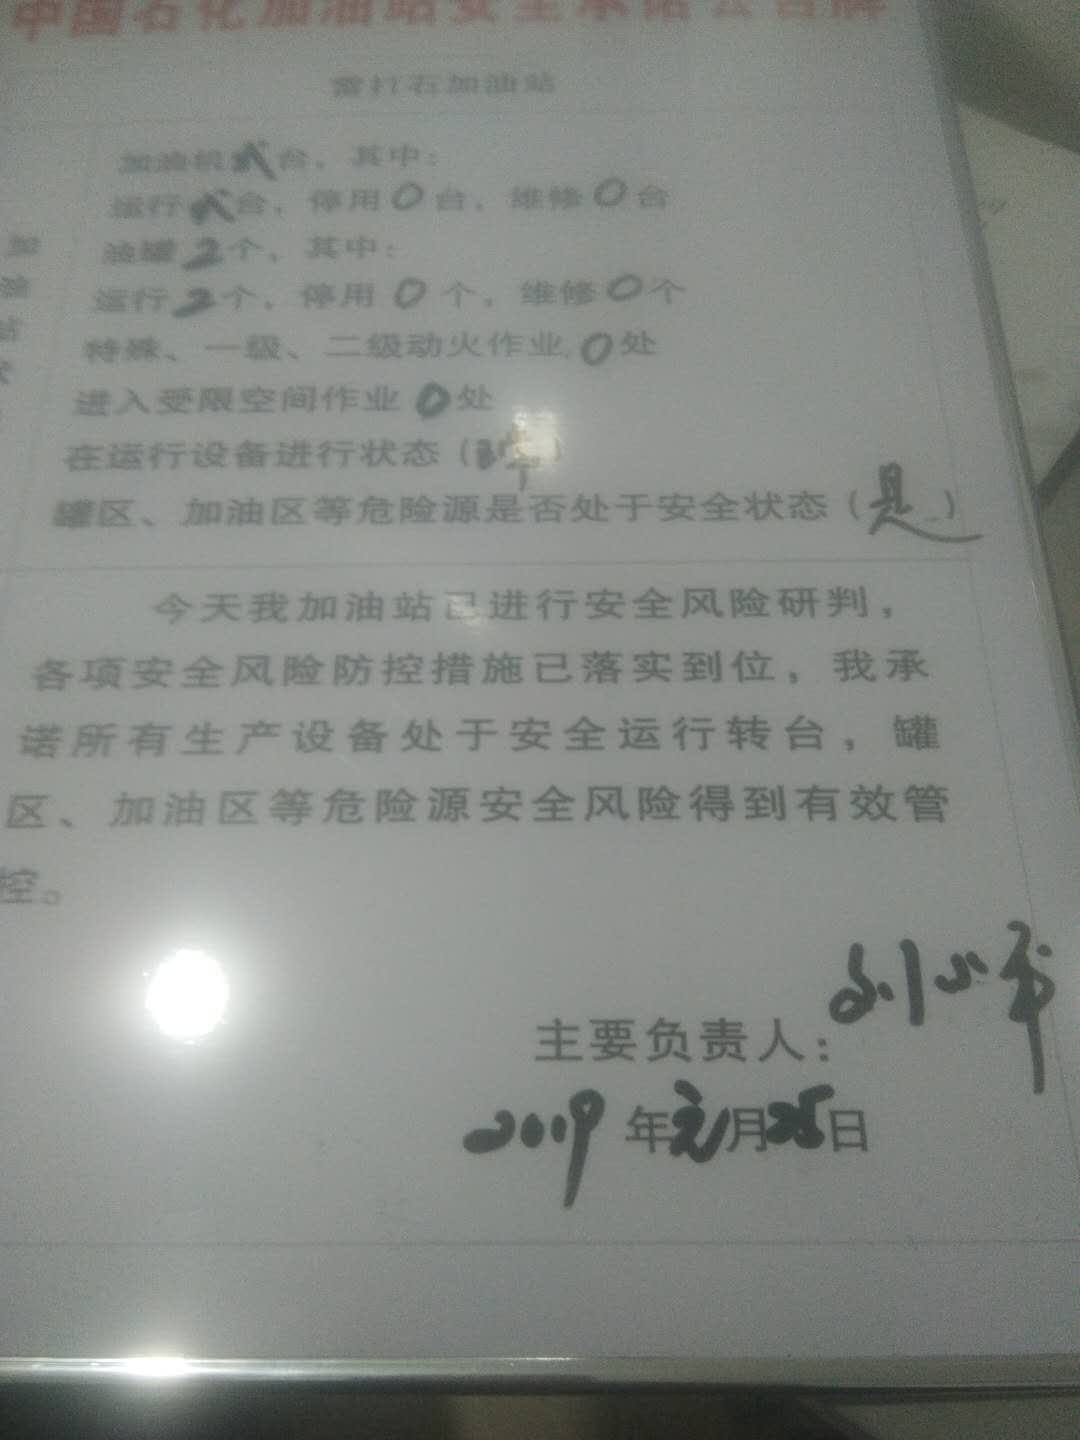 中国石化加油站安全承诺公告牌
雷打石加油站
加油机 台，其中：
运行 台，停用0台，维修0台
油罐2个，其中：
运行2个，停用0个，维修0个
特殊、一级、二级动火作业0处
进入受限空间作业0处
在运行设备进行状态（ ）
罐区、加油区等危险源是否处于安全状态（是）
今天我加油站已进行安全风险研判，
各项安全风险防控措施已落实到位，我承
诺所有生产设备处于安全运行转台，罐
区、加油区等危险源安全风险得到有效管
控。
刘小
主要负责人：
2019年元月25日